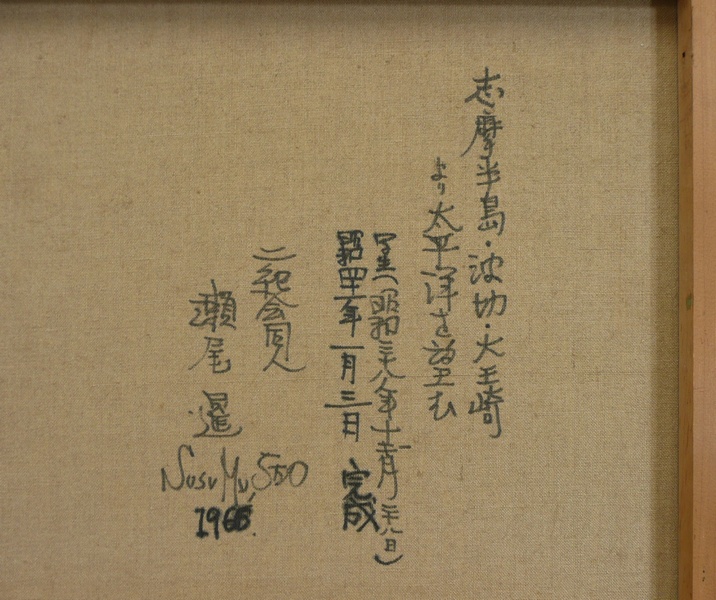 志摩半島・波切・大王崎
より太平洋を望む
写生(昭和三十八年十一月二十八日)
昭和四十一年一月三日 完成
二紀会同人
瀬尾 暹
SUSUMU, SEO
1966.